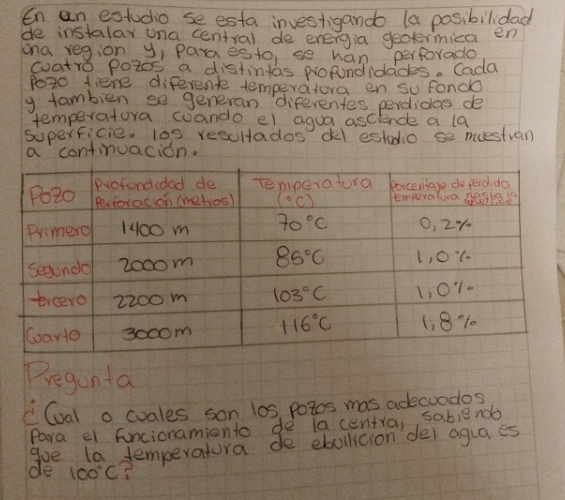 En un estudio se esta investigando la posibilidad
de instalar una central de energia geotermica en
una region y, para esto, se han perforado
cuatro pozos a distintas profundidades. Cada
Pozo tiene diferente temperatura en su fondo
y tambien se generan diferentes perdidas de
temperatura cuando el agua asciende a la
superficie. los resultados del estudio se muestran
a continuación.
Pozo Profundidad de Perforación (metros) Temperatura (°C) Porcentaje de perdida temperatura hasta la superficie
Primero 1400 m 70°C 0,2%
Segundo 2000 m 85°C 1,0%
tercero 2200 m 103°C 1,0%
Cuarto 3000 m 116°C 1,8%
Pregunta
¿Cual o cuales son los pozos mas adecuados
Para el funcionamiento de la central, sabiendo
que la temperatura de ebullicion del agua es
de 100°C?